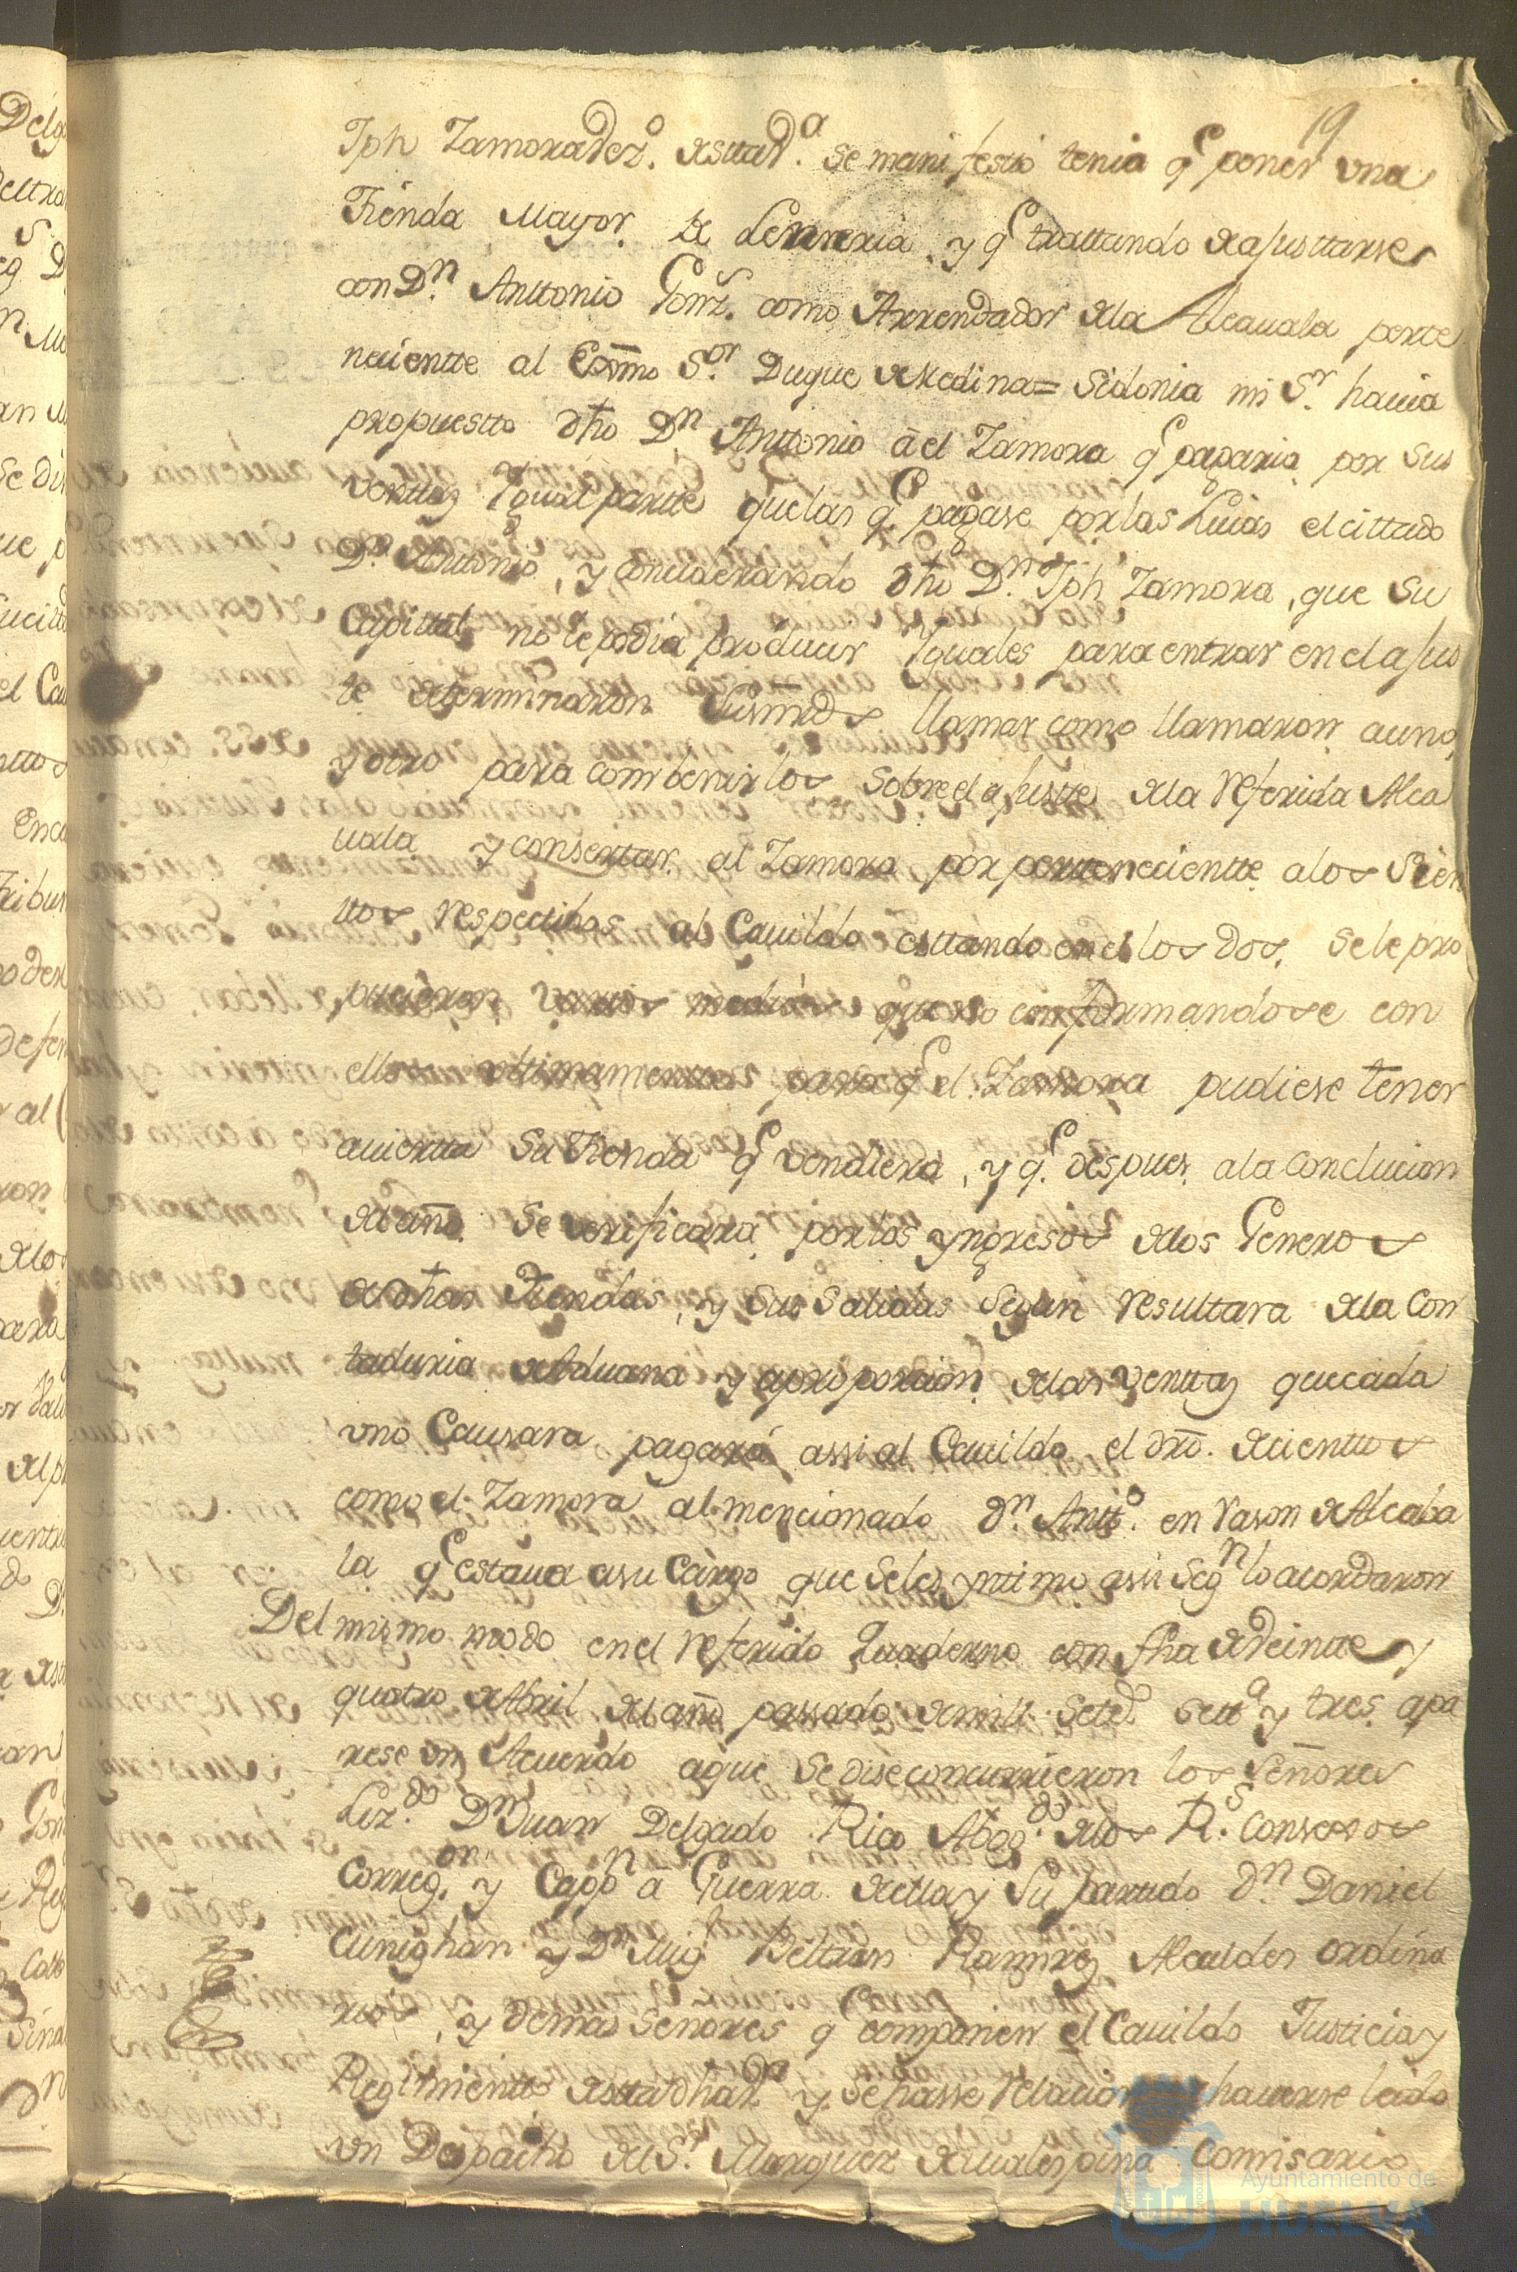 19
Jph Zamora Vez.º de esttad.ª se manifestó tenia q.e poner una
Tienda Mayor de Lenzeria, y q.e trattando de ajusttarse
con D.n Anttonio Gonz.s como Arrendador de la Alcauala perte
neciente al Exmo S.or Duque de Medina=Sidonia mi S.r hauia
propuestto dho D.n Anttonio a el Zamora q.e pagaria por sus
venttas Ygual partte que las q.e pagase por las Suias el cittado
D.n Anttonio, y considerando dho D.n Jph Zamora, que su
Capittal no le podia producir Yguales para entrar en el ajus
te determinaron Susmrds llamar como llamaron a uno,
y otro para combenirlos sobre el ajustte de la referida Alca
uala y consertar al Zamora por pertteneciente a los Sien
ttos respectibos al Cauildo esttando en el los dos, se le pro
pucieron varios medios que no conformandose con
ellos ultimamente para q.e el Zamora pudiese tener
auiertta su Tienda q.e vendiera, y q.e despues a la conclucion
del año se verificara por los yngresos de los Generos
de dhas Tiendas, y sus salidas segun resultara de la Con
taduria de Aduana y aproporcion de las venttas que cada
uno Causara pagará assi al Cauildo el dro. de cienttos
como el Zamora al mencionado d.n Antt.º en rason de Alcaba
la q.e estaua a su Cargo que se les yntimo assi seg.n lo acordaron
Del mismo modo en el referido Quaderno con fha de veintte y
quatro de Abril del año passado de mill Seted.s sett.ª y tres apa
rese un Acuerdo a que se dise concurrieron los Señores
Liz.do D.n Juan Delgado Rico Abog.do de los R.s Consexos
Correg.or y Cap.n a Guerra de ella y su partido d.n Daniel
Cunighan y D.n Mig.l Beltran Ramirez Alcaldes ordina
rios, y demas Señores q.e componen el Cauildo Justicia y
Regimientto de estta dha V.ª y se hasse relacion hauerse leido
un Despacho del S.r Marquez de Malespina Comisario
Ayuntamiento de
HUELVA